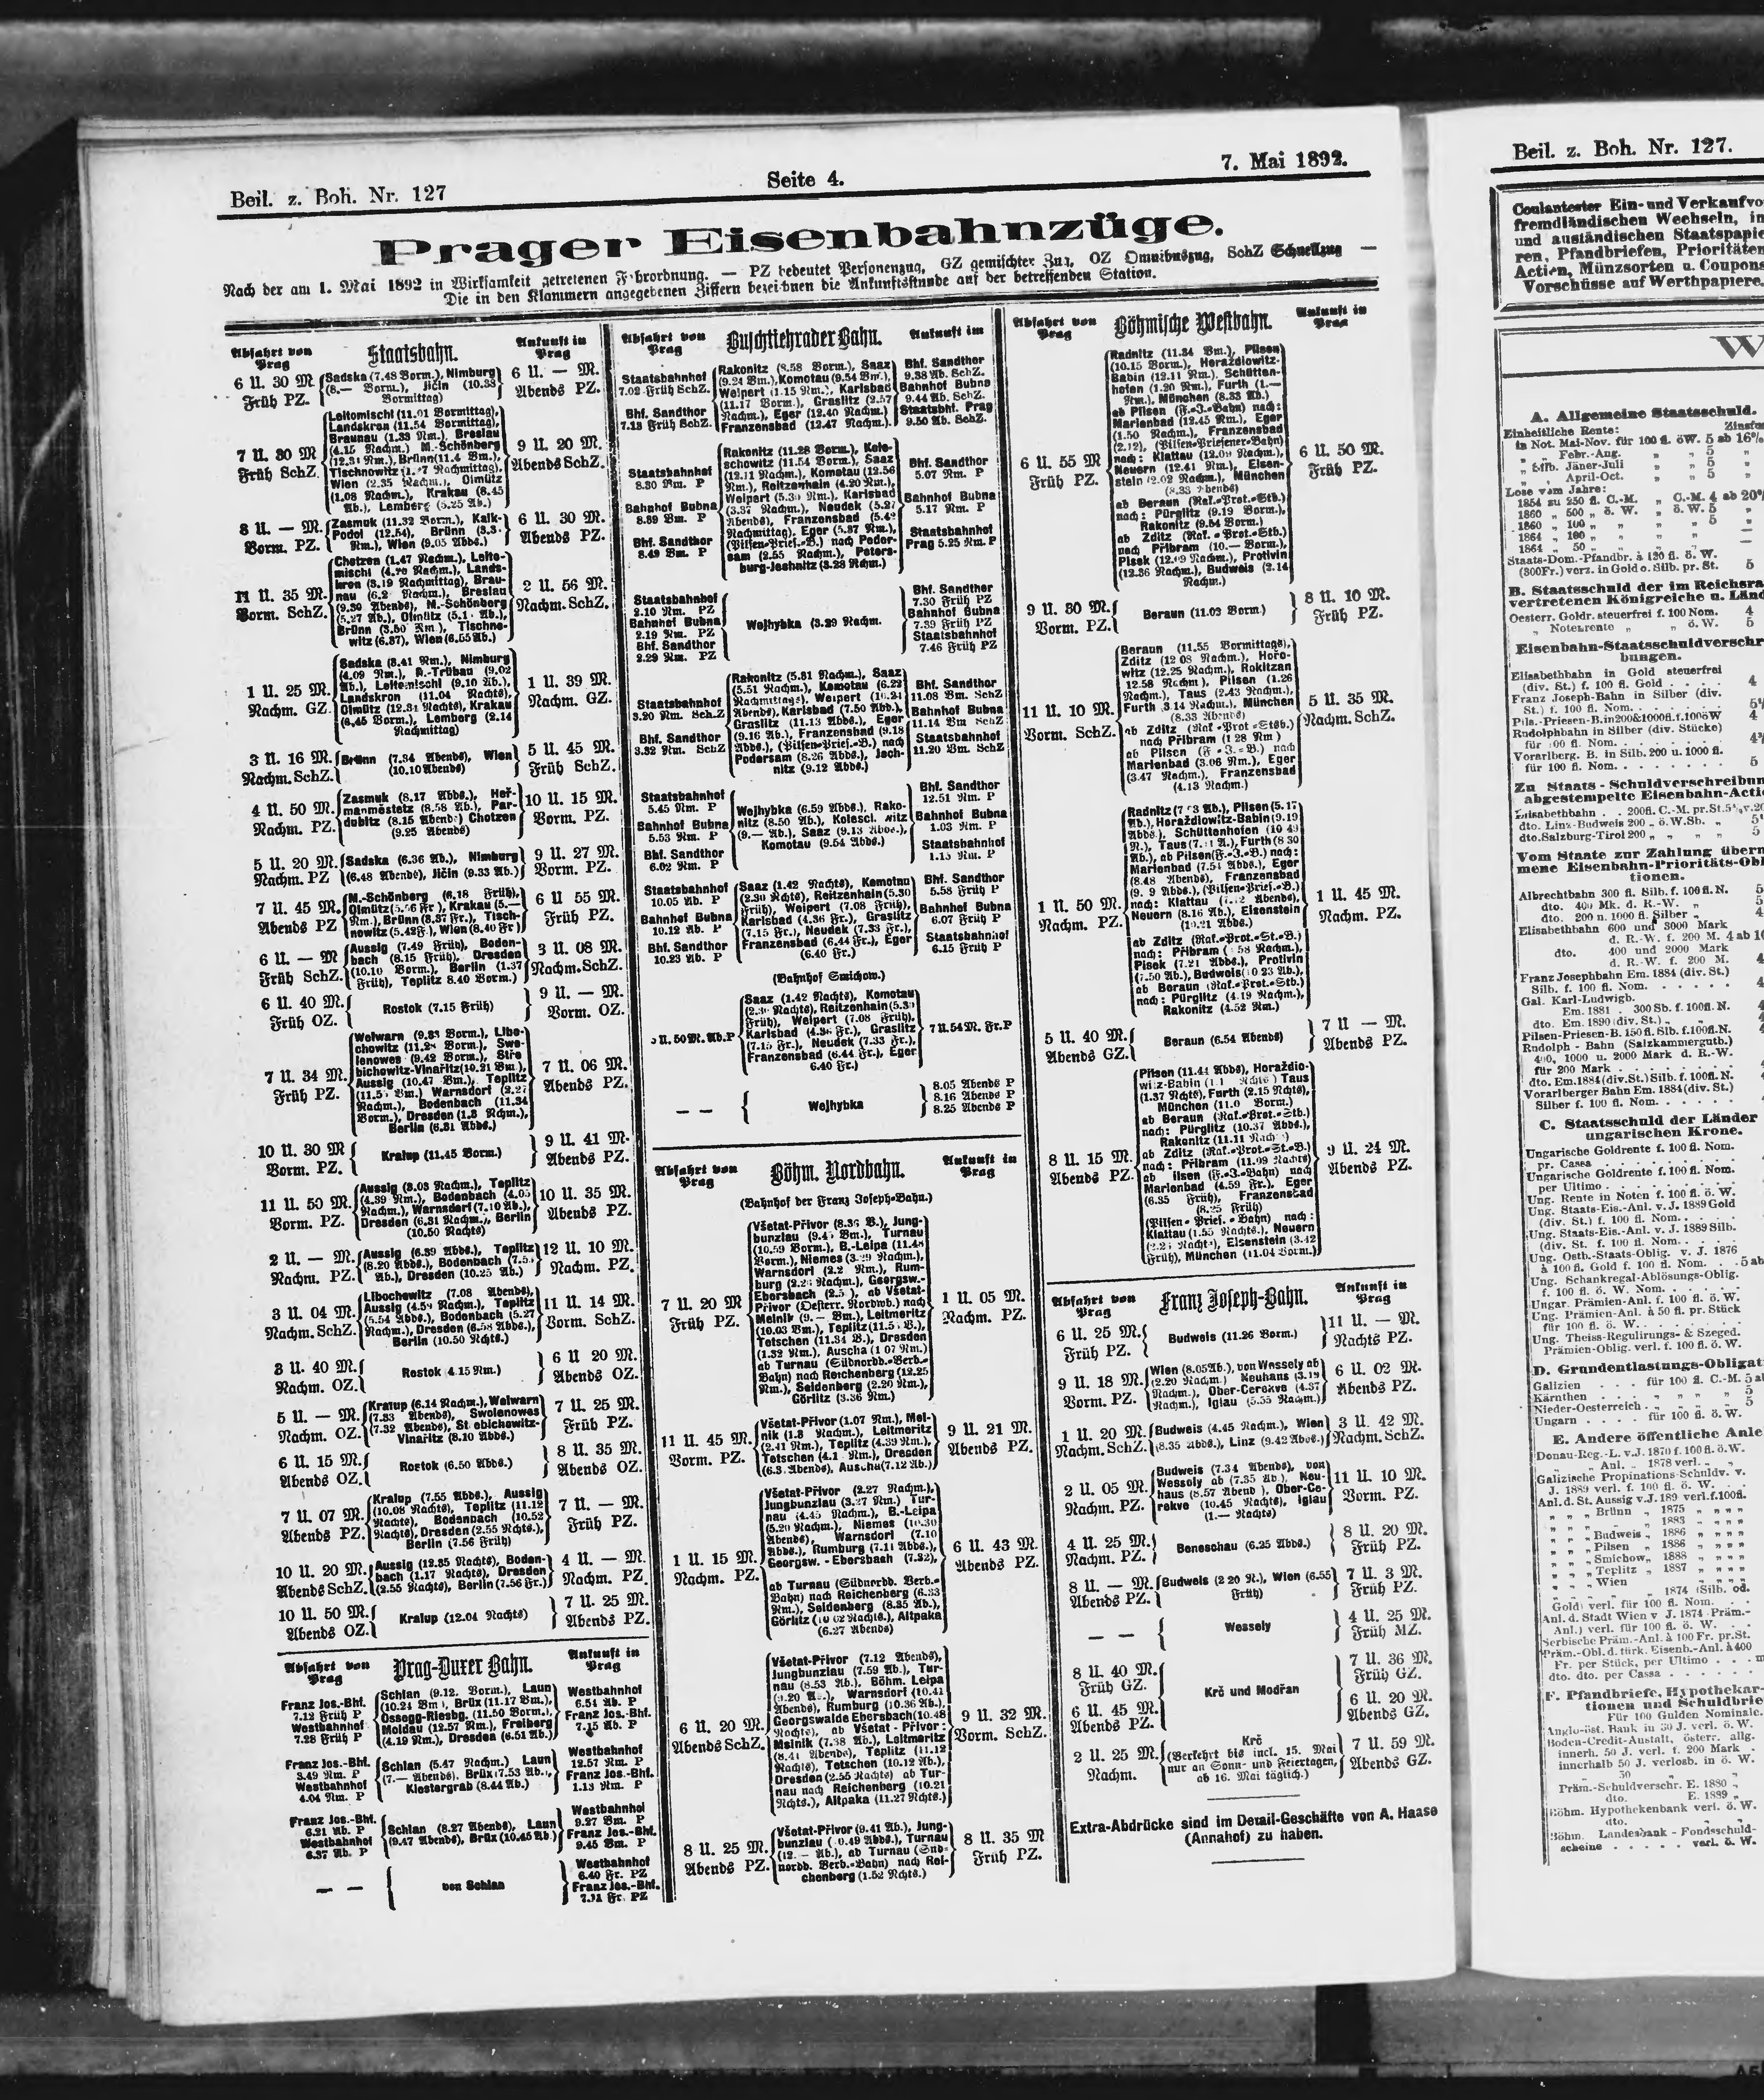 Beil. z. Boh. Nr. 127
Seite 4.
7. Mai 1892.
Prager Eisenbahnzüge.
Nach der am 1. Mai 1892 in Wirksamkeit getretenen Fahrordnung. — PZ bedeutet Personenzug, GZ gemischter Zug, OZ Omnibuszug, SchZ Schnellzug —
Die in den Klammern angegebenen Ziffern bezeichnen die Ankunftsstunde auf der betreffenden Station.
Abfahrt von Prag
Staatsbahn.
Ankunft in Prag
6 U. 30 M. Früh PZ.
Sadska (7.48 Vorm.), Nimburg
(8.— Vorm.), Jičin (10.33
Vormittag)
6 U. — M. Abends PZ.
7 U. 30 M Früh SchZ.
Leitomischl (11.01 Vormittag),
Landskron (11.54 Vormittag),
Braunau (1.33 Nm.), Breslau
(4.15 Nachm.) M.-Schönberg
Tischowitz
Wien (2.35 Nachm.), Olmütz
(1.08 Nachm.), Krakau (6.45
Ab.), Lemberg (5.25 Ab.)
9 U. 20 M. Abends SchZ.
8 U. — M. Vorm. PZ.
Zasmuk (11.32 Vorm.), Kalk-
Podol (12.54), Brünn
Nm.), Wien (9.05 Abds.)
6 U. 30 M. Abends PZ.
11 U. 35 M. Vorm. SchZ.
Chotzen (1.47 Nachm.), Leito-
mischl Nachm.), Lands-
kron (3.19 Nachmittag), Brau-
nau Nachm.), Breslau
(9.30 Abends), M.-Schönberg
(5.27 Ab.), Olmütz
Brünn (3.50 Nm.), Tischno-
witz (6.37), Wien (6.55 Ab.)
2 U. 56 M. Nachm. SchZ.
1 U. 25 M. Nachm. GZ.
Sadska (3.41 Nm.), Nimburg
(4.09 Nm.), B.-Trübau (9.02
Ab.), Leitomischl (9.10 Ab.),
Landskron (11.04 Nachts),
Olmütz (12.31 Nachts), Krakau
(6.45 Vorm.), Lemberg (2.14
Nachmittag)
1 U. 39 M. Nachm. GZ.
3 U. 16 M. Nachm. SchZ.
Brünn (7.34 Abends), Wien
(10.10 Abends)
5 U. 45 M. Früh SchZ.
4 U. 50 M. Nachm. PZ.
Zasmuk (8.17 Abds.), Heř-
manměstetz (8.58 Ab.), Par-
dubitz (8.15 Abends) Chotzen
(9.25 Abends)
10 U. 15 M. Vorm. PZ.
5 U. 20 M. Nachm. PZ
Sadska (6.36 Ab.), Nimburg
(6.48 Abends), Jičin (9.33 Ab.)
9 U. 27 M. Vorm. PZ.
7 U. 45 M. Abends PZ
M.-Schönberg (6.18 Früh),
Olmütz Krakau (5.—
Nm.), Brünn (3.37 Fr.), Tisch-
nowitz (5.42 F.), Wien (6.40 Fr)
6 U 55 M. Früh PZ.
6 U. — M Früh SchZ.
Aussig (7.49 Früh), Boden-
bach (8.15 Früh), Dresden
(10.10 Vorm.), Berlin (1.37
Früh), Teplitz 8.40 Vorm.)
3 U. 08 M. Nachm. SchZ.
6 U. 40 M. Früh OZ.
Rostok (7.15 Früh)
9 U. — M. Vorm. OZ.
7 U. 34 M. Früh PZ.
Welwarn (9.33 Vorm.), Libo-
chowitz Vorm.), Swo-
lenowes (9.42 Vorm.), Stře
bichowitz-Vinařitz (10.21 Vm.),
Aussig (10.47 Vm.), Teplitz
Vm.) Warnsdorf (2.27
Nachm.), Bodenbach (11.34
Vorm.), Dresden (1.8 Nchm.),
Berlin (6.31 Abds.)
7 U. 06 M. Abends PZ.
10 U. 30 M Vorm. PZ.
Kralup (11.45 Vorm.)
9 U. 41 M. Abends PZ.
11 U. 50 M. Vorm. PZ.
Aussig (3.03 Nachm.), Teplitz
(4.39 Nm.), Bodenbach (4.05
Nachm.), Warnsdorf (7.10 Ab.),
Dresden (6.31 Nachm.), Berlin
(10.50 Nachts)
10 U. 35 M. Abends PZ.
2 U. — M. Nachm. PZ.
Aussig (6.39 Abds.), Teplitz
(8.20 Abds.), Bodenbach
Ab.), Dresden (10.25 Ab.)
12 U. 10 M. Nachm. PZ.
3 U. 04 M. Nachm. SchZ.
Libochowitz (7.08 Abends),
Aussig (4.59 Nachm.), Teplitz
(5.54 Abds.), Bodenbach (5.27
Nachm.), Dresden (6.58 Abds.),
Berlin (10.50 Nchts.)
11 U. 14 M. Vorm. SchZ.
3 U. 40 M. Nachm. OZ.
Rostok 4.15 Nm.)
6 U 20 M. Abends OZ.
5 U. — M. Nachm. OZ.
Kralup (6.14 Nachm.), Welwarn
(7.33 Abends), Swolenowes
(7.32 Abends),
Vinařitz (8.10 Abds.)
7 U. 25 M. Früh PZ.
6 U. 15 M. Abends OZ.
Rostok (6.50 Abds.)
8 U. 35 M. Abends OZ.
7 U. 07 M. Abends PZ.
Kralup (7.55 Abds.), Aussig
(10.08 Nachts), Teplitz (11.12
Nachts), Bodenbach (10.52
Nachts), Dresden (2.55 Nchts.),
Berlin (7.56 Früh)
7 U. — M. Früh PZ.
10 U. 20 M. Abends SchZ.
Aussig (12.35 Nachts), Boden-
bach (1.17 Nachts), Dresden
(2.55 Nachts), Berlin (7.56 Fr.)
4 U. — M. Nachm. PZ.
10 U. 50 M. Abends OZ.
Kralup (12.04 Nachts)
7 U. 25 M. Abends PZ.
Abfahrt von Prag
Prag-Duxer Bahn.
Ankunft in Prag
Franz Jos.-Bhf.
7.12 Früh P
Westbahnhof
7.28 Früh P
Schlan (9.12. Vorm.), Laun
(10.24 Vm.), Brüx (11.17 Vm.),
Ossegg-Riesbg. (11.50 Vorm.),
Moldau (12.57 Nm.), Freiberg
(4.19 Nm.), Dresden (6.51 Ab.)
Westbahnhof
6.54 Ab. P
Franz Jos.-Bhf.
7.15 Ab. P
Franz Jos.-Bhf.
3.49 Nm. P
Westbahnhof
4.04 Nm. P
Schlan (5.47 Nachm.) Laun
(7.— Abends), Brüx (7.53 Ab.),
Klostergrab (8.44 Ab.)
Westbahnhof
12.57 Nm. P
Franz Jos.-Bhf.
1.13 Nm. P
Franz Jos.-Bhf.
6.21 Ab. P
Westbahnhof
6.37 Ab. P
Schlan (8.27 Abends), Laun
(9.47 Abends), Brüx (10.45 Ab.)
Westbahnhof
9.27 Vm. P
Franz Jos.-Bhf.
9.45 Vm. P
— —
von Schlan
Westbahnhof
6.40 Fr. PZ
Franz Jos.-Bhf.
Fr. PZ
Abfahrt von Prag
Buschtiehrader Bahn.
Ankunft im
Staatsbahnhof
7.02 Früh SchZ.
Bhf. Sandthor
7.13 Früh SchZ.
Rakonitz (8.58 Vorm.), Saaz
(9.24 Vm.), Komotau (9.54 Vm.),
Weipert (1.15 Nm.), Karlsbad
(11.17 Vorm.), Graslitz (2.57
Nachm.), Eger (12.40 Nachm.)
Franzensbad (12.47 Nachm.)
Bhf. Sandthor
9.38 Ab. SchZ.
Bahnhof Bubna
9.44 Ab. SchZ.
Staatsbhf. Prag
9.50 Ab. SchZ.
Staatsbahnhof
8.30 Vm. P
Bahnhof Bubna
8.39 Vm. P
Bhf. Sandthor
8.49 Vm. P
Rakonitz (11.28 Vorm.), Kole-
schowitz (11.54 Vorm.), Saaz
(12.11 Nachm.), Komotau (12.56
Nm.), Reitzenhain (4.20 Nm.),
Weipert Nm.), Karlsbad
(3.37 Nachm.), Neudek (5.27
Abends), Franzensbad (5.42
Nachmittag), Eger (5.37 Nm.),
(Pilsen-Prief.-B.) nach Poder-
sam (2.55 Nachm.), Peters-
burg-Jechnitz (3.28 Nchm.)
Bhf. Sandthor
5.07 Nm. P
Bahnhof Bubna
5.17 Nm. P
Staatsbahnhof
Prag 5.25 Nm. P
Staatsbahnhof
2.10 Nm. PZ
Bahnhof Bubna
2.19 Nm. PZ
Bhf. Sandthor
2.29 Nm. PZ
Wejhybka (3.29 Nachm.
Bhf. Sandthor
7.30 Früh PZ
Bahnhof Bubna
7.39 Früh PZ
Staatsbahnhof
7.46 Früh PZ
Staatsbahnhof
3.20 Nm. SchZ
Bhf. Sandthor
3.32 Nm. SchZ
Rakonitz (5.31 Nachm.), Saaz
(5.51 Nachm.), Komotau (6.22
Nachmittags), Weipert
Abends), Karlsbad (7.50 Abd.),
Graslitz (11.13 Abds.), Eger
(9.16 Ab.), Franzensbad (9.18
Abds.), (Pilsen-Prief.-B.) nach
Podersam (8.26 Abds.), Jech-
nitz (9.12 Abds.)
Bhf. Sandthor
11.08 Vm. SchZ
Bahnhof Bubna
11.14 Vm SchZ
Staatsbahnhof
11.20 Vm. SchZ
Staatsbahnhof
5.45 Nm. P
Bahnhof Bubna
5.53 Nm. P
Bhf. Sandthor
6.02 Nm. P
Wejhybka (6.59 Abds.), Rako-
nitz (8.50 Ab.),
(9.— Ab.), Saaz (9.13 Abds.),
Komotau (9.54 Abds.)
Bhf. Sandthor
12.51 Nm. P
Bahnhof Bubna
1.03 Nm. P
Staatsbahnhof
1.13 Nm. P
Staatsbahnhof
10.05 Ab. P
Bahnhof Bubna
10.12 Ab. P
Bhf. Sandthor
10.23 Ab. P
Saaz (1.42 Nachts), Komotau
(2.30 Nachts), Reitzenhain (5.30
Früh), Weipert (7.08 Früh),
Karlsbad (4.36 Fr.), Graslitz
(7.15 Fr.), Neudek (7.33 Fr.),
Franzensbad (6.44 Fr.), Eger
(6.40 Fr.)
Bhf. Sandthor
5.58 Früh P
Bahnhof Bubna
6.07 Früh P
Staatsbahnhof
6.15 Früh P
(Bahnhof Smichow.)
U. 50 M. Ab. P
Saaz (1.42 Nachts), Komotau
Nachts), Reitzenhain
Früh), Weipert (7.08 Früh),
Karlsbad (4.36 Fr.), Graslitz
(7.15 Fr.), Neudek (7.33 Fr.),
Franzensbad (6.44 Fr.), Eger
6.40 Fr.)
7 U. 54 M. Fr. P
— —
Wejhybka
8.05 Abends P
8.16 Abends P
8.25 Abends P
Abfahrt von Prag
Böhm. Nordbahn.
Ankunft in Prag
(Bahnhof der Franz Joseph-Bahn.)
7 U. 20 M Früh PZ.
Všetat-Přivor (8.36 V.), Jung-
bunzlau Vm.), Turnau
(10.59 Vorm.), B.-Leipa (11.48
Vorm.), Niemes (3.29 Nachm.),
Warnsdorf (2.2 Nm.), Rum-
burg Nachm.), Georgsw.-
Ebersbach ab Všetat-
Přivor (Oesterr. Nordwb.) nach
Melnik (9.— Vm.), Leitmeritz
(10.03 Vm.), Teplitz
Tetschen (11.34 V.), Dresden
(1.32 Nm.), Auscha (1 07 Nm.)
ab Turnau (Südnordb.-Verb.-
Bahn) nach Reichenberg (12.25
Nm.), Seidenberg (2.20 Nm.),
Görlitz (3.36 Nm.)
1 U. 05 M. Nachm. PZ.
11 U. 45 M. Vorm. PZ.
Všetat-Přivor (1.07 Nm.), Mel-
nik (1.8 Nachm.), Leitmeritz
(2.41 Nm.), Teplitz (4.39 Nm.),
Tetschen Nm.), Dresden
Abends), Auscha (7.12 Ab.)
9 U. 21 M. Abends PZ.
1 U. 15 M. Nachm. PZ.
Všetat-Přivor (2.27 Nachm.),
Jungbunzlau (3.27 Nm.) Tur-
nau (4.45 Nachm.), B.-Leipa
(5.20 Nachm.), Niemes (10.30
Abends), Warnsdorf (7.10
Abds.), Rumburg (7.11 Abds.),
Georgsw.-Ebersbach (7.22),
ab Turnau (Südnordb. Verb.-
Bahn) nach Reichenberg (6.33
Nm.), Seidenberg (8.35 Ab.),
Görlitz (10 02 Nachts.), Altpaka
(6.27 Abends)
6 U. 43 M. Abends PZ.
6 U. 20 M. Abends SchZ.
Všetat-Přivor (7.12 Abends),
Jungbunzlau (7.59 Ab.), Tur-
nau (8.53 Ab.), Böhm. Leipa
Warnsdorf (10.41
Abends), Rumburg (10.36 Ab.),
Georgswalde Ebersbach (10.48
Nachts), ab Všetat-Přivor:
Melnik (7.38 Ab.), Leitmeritz
(8.41 Abends), Teplitz (11.12
Nachts), Tetschen (10.12 Ab.),
Dresden (2.55 Nachts) ab Tur-
nau nach Reichenberg (10.21
Nchts.), Altpaka (11.27 Nchts.)
9 U. 32 M. Vorm. SchZ.
8 U. 25 M. Abends PZ.
Všetat-Přivor (9.41 Ab.), Jung-
bunzlau Abds.), Turnau
(12.— Ab.), ab Turnau (Snd-
nordb. Verb.-Bahn) nach Rei-
chenberg (1.52 Nchts.)
8 U. 35 M Früh PZ.
Abfahrt von Prag
Böhmische Westbahn.
Ankunft in Prag
6 U. 55 M Früh PZ.
Radnitz (11.34 Vm.), Pilsen
(10.15 Vorm.), Horaždiowitz-
Babin (12.11 Nm.), Schütten-
hofen (1.20 Nm.), Furth (1.—
Nm.), München (8.33 Ab.)
ab Pilsen (F.-J.-Bahn) nach:
Marienbad (12.45 Nm.), Eger
(1.50 Nachm.), Franzensbad
(2.12), (Pilsen-Priesener-Bahn)
nach: Klattau (12.09 Nachm.),
Neuern (12.41 Nm.), Eisen-
stein (2.02 Nachm.), München
(8.33 Abends)
ab Beraun (Rak.-Prot.-Stb.)
nach: Pürglitz (9.19 Vorm.),
Rakonitz (9.54 Vorm.)
ab Zditz (Rak.-Prot.-Stb.)
nach Přibram (10.— Vorm.),
Pisek (12.09 Nachm.), Protivin
(12.36 Nachm.), Budweis (2.14
Nachm.)
6 U. 50 M. Früh PZ.
9 U. 30 M. Vorm. PZ.
Beraun (11.03 Vorm.)
8 U. 10 M. Früh PZ.
11 U. 10 M. Vorm. SchZ.
Beraun (11.55 Vormittags),
Zditz (12 08 Nachm.), Hořo-
witz (12.25 Nachm.), Rokitzan
12.58 Nachm.), Pilsen (1.26
Nachm.), Taus (2.43 Nachm.),
Furth 3.14 Nachm.), München
(8.33 Abends)
ab Zditz (Rak.-Prot.-Stsb.)
nach Přibram (1 28 Nm)
ab Pilsen (F.-J.-B.) nach
Marienbad (3.06 Nm.), Eger
(3.47 Nachm.), Franzensbad
(4.13 Nachm.)
5 U. 35 M. Nachm. SchZ.
1 U. 50 M. Nachm. PZ.
Radnitz Ab.), Pilsen (5.17
Ab.), Horaždiowitz-Babin (9.19
Abds.), Schüttenhofen (10 49
N.), Taus Furth (8 30
Ab.), ab Pilsen (F.-J.-B.) nach:
Marienbad (7.54 Abds.), Eger
(8.48 Abends), Franzensbad
Abds.), (Pilsen-Prief.-B.)
nach: Klattau Abends),
Neuern (8.16 Ab.), Eisenstein
(10.21 Abds.)
ab Zditz (Rak.-Prot.-St.-B.)
nach: Přibram Nachm.),
Pisek (7.21 Abds.), Protivin
(7.50 Ab.), Budweis(10 23 Ab.),
ab Beraun (Rak.-Prot.-Stb.)
nach: Pürglitz (4.19 Nachm.),
Rakonitz (4.52 Nm.)
1 U. 45 M. Nachm. PZ.
5 U. 40 M. Abends GZ.
Beraun (6.54 Abends)
7 U — M. Abends PZ.
8 U. 15 M. Abends PZ.
Pilsen (11.44 Abds), Horaždio-
witz-Babin Taus
(1.37 Nachts), Furth (2.15 Nachts),
München Vorm.)
ab Beraun (Rak.-Prot.-Stb.)
nach: Pürglitz (10.37 Abds.),
Rakonitz
ab Zditz (Rak.-Prot.-St.-B.)
nach: Přibram (11.09 Nachts)
ab (F.-J.-Bahn) nach
Marienbad (4.59 Fr.), Eger
(6.35 Früh), Franzensbad
(8.25 Früh)
(Pilsen-Prief.-Bahn) nach:
Klattau (1.55 Nachts.), Neuern
Eisenstein (3.42
Früh), München (11.04 Vorm.)
9 U. 24 M. Abends PZ.
Abfahrt von Prag
Franz Joseph-Bahn.
Ankunft in Prag
6 U. 25 M. Früh PZ.
Budweis (11.26 Vorm.)
11 U. — M. Nachts PZ.
9 U. 18 M. Vorm. PZ.
Wien (8.05 Ab.), von Wessely ab
(2.20 Nachm.) Neuhaus (3.19
Nachm.), Ober-Cerekve (4.37
Nachm.), Iglau (5.55 Nachm.)
6 U. 02 M. Abends PZ.
1 U. 20 M. Nachm. SchZ.
Budweis (4.45 Nachm.), Wien
(8.35 Abds.), Linz (9.42 Abds.)
3 U. 42 M. Nachm. SchZ.
2 U. 05 M. Nachm. PZ.
Budweis (7.34 Abends), von
Wessely ab (7.35 Ab.), Neu-
haus (8.57 Abend), Ober-Ce-
rekve (10.45 Nachts), Iglau
(1.— Nachts)
11 U. 10 M. Vorm. PZ.
4 U. 25 M. Nachm. PZ.
Beneschau (6.25 Abds.)
8 U. 20 M. Früh PZ.
8 U. — M. Abends PZ.
Budweis (2 20 N.), Wien (6.55
Früh)
7 U. 3 M. Früh PZ.
— —
Wessely
4 U. 25 M. Früh MZ.
8 U. 40 M. Früh GZ.
6 U. 45 M. Abends PZ.
Krč und Modřan
7 U. 36 M. Früh GZ.
6 U. 20 M. Abends GZ.
2 U. 25 M. Nachm.
Krč
(Verkehrt bis incl. 15. Mai
nur an Sonn- und Feiertagen,
ab 16. Mai täglich.)
7 U. 59 M. Abends GZ.
Extra-Abdrücke sind im Detail-Geschäfte von A. Haase
(Annahof) zu haben.
Beil. z. Boh. Nr. 127.
Coulantester Ein- und Verkauf
fremdländischen Wechseln,
und ausländischen
ren, Pfandbriefen, Prioritäten
Actien, Münzsorten u. Coupons
Vorschüsse auf Werthpapiere.
W
A. Allgemeine Staatsschuld.
Einheitliche Rente:
in Not. Mai-Nov. für 100 fl. öW. 5 ab 16%
„ „ Febr.-Aug. „ „ 5 „
„ Silb. Jäner-Juli „ „ 5 „
„ „ April-Oct. „ „ 5 „
Lose vom Jahre:
1854 zu 250 fl. C.-M. „ C.-M. 4 ab 20%
1860 „ 500 „ ö. W. „ ö. W. 5 „
1860 „ 100 „ „ „ 5 „
1864 „ 100 „ „ „ —
1864 „ 50 „ „ „ —
Staats-Dom.-Pfandbr. à 120 fl. ö. W.
(300Fr.) verz. in Gold o. Silb. pr. St. 5
B. Staatsschuld der im
vertretenen Königreiche u.
Oesterr. Goldr. steuerfrei f. 100 Nom. 4
„ Notenrente „ „ ö. W. 5
Eisenbahn-
bungen.
Elisabethbahn in Gold steuerfrei
(div. St.) f. 100 fl. Gold . . . . 4
Franz Joseph-Bahn in Silber (div.
St.) f. 100 fl. Nom. . . . . . .
Pils.-Priesen-B.in200&1000fl.f.100öW 4
Rudolphbahn in Silber (div. Stücke)
für 100 fl. Nom. . . . . . . .
Vorarlberg. B. in Silb. 200 u. 1000 fl. 5
Zu Staats-
abgestempelte
Elisabethbahn . . 200fl. C.-M. pr.St.
dto. Linz-Budweis 200 . ö.W.Sb. „
dto.Salzburg-Tirol 200 „ „ „ „ 5
Vom Staate zur Zahlung
mene
tionen.
Albrechtbahn 300 fl. Silb. f. 100 fl. N. 5
dto. 400 Mk. d. R.-W. „ 5
dto. 200 n. 1000 fl. Silber „ 4
Elisabethbahn 600 und 3000 Mark
d. R.-W. f. 200 M. 4 ab
dto. 400 und 2000 Mark
d. R.-W. f. 200 M. 4
Franz Josephbahn Em. 1884 (div. St.)
Silb. f. 100 fl. Nom. . . . . . 4
Gal. Karl-Ludwigb.
Em. 1881 . 300 Sb. f. 100fl. N.
dto. Em. 1890 (div. St.) . „ 4
Pilsen-Priesen-B. 150 fl. Slb. f.100fl.N. 4
Rudolph-Bahn (Salzkammerguth.)
400, 1000 u. 2000 Mark d. R.-W.
für 200 Mark . . . . . . . .
dto. Em.1884(div.St.)Silb. f. 100fl.N.
Vorarlberger Bahn Em. 1884(div. St.)
Silber f. 100 fl. Nom. . . . . .
C. Staatsschuld der Länder
ungarischen Krone.
Ungarische Goldrente f. 100 fl. Nom.
pr. Cassa . . . . . . . . .
Ungarische Goldrente f. 100 fl. Nom.
per Ultimo . . . . . . . . .
Ung. Rente in Noten f. 100 fl. ö. W.
Ung. Staats-Eis.-Anl. v. J. 1889 Gold
(div. St.) f. 100 fl. Nom. . . .
Ung. Staats-Eis.-Anl. v. J. 1889 Silb.
(div. St. f. 100 fl. Nom. . . .
Ung. Ostb.-Staats-Oblig. v. J. 1876
à 100 fl. Gold f. 100 fl. Nom. . 5 ab
Ung. Schankregal-Ablösungs-Oblig.
f. 100 fl. ö. W. Nom. . . . .
Ungar. Prämien-Anl. f. 100 fl. ö. W.
Ung. Prämien-Anl. à 50 fl. pr. Stück
für 100 fl. ö. W. . . . . . .
Ung. Theiss-Regulirungs- & Szeged.
Prämien-Oblig. verl. f. 100 fl. ö. W.
D. Grundentlastungs-
Galizien . . . für 100 fl. C.-M. 5
Kärnthen . . . „ „ „ „ 5
Nieder-Oesterreich . „ „ „ „ 5
Ungarn . . . . für 100 fl. ö. W.
E. Andere öffentliche
Donau-Reg.-L. v.J. 1870 f. 100 fl. ö.W.
„ Anl. „ 1878 verl. „ „
Galizische Propinations-Schuldv. v.
J. 1889 verl. f. 100 fl. ö. W. . .
Anl. d. St. Aussig v.J. 189 verl.f.100fl.
„ „ „ Brünn „ 1875 „ „ „ „
„ „ „ „ 1883 „ „ „ „
„ „ „ Budweis „ 1886 „ „ „ „
„ „ „ Pilsen „ 1886 „ „ „ „
„ „ „ Smichow „ 1888 „ „ „ „
„ „ „ Teplitz „ 1887 „ „ „ „
„ „ „ Wien „ 1874 (Silb. od.
Gold) verl. für 100 fl. Nom. . .
Anl. d. Stadt Wien v. J. 1874 Präm.-
Anl.) verl. für 100 fl. ö. W. . .
Serbische Präm.-Anl. à 100 Fr. pr.St.
Präm.-Obl. d. türk. Eisenb.-Anl. à 400
Fr. per Stück, per Ultimo . . .
dto. dto. per Cassa . . . . . .
F. Pfandbriefe, Hypothekar-
tionen und
Für 100 Gulden Nominale.
Anglo-öst. Bank in 30 J. verl. ö. W.
Boden-Credit-Anstalt, österr. allg.
innerh. 50 J. verl. f. 200 Mark .
innerhalb 50 J. verlosb. in ö. W.
„ 50 „ „ „ „
Präm.-Schuldverschr. E. 1880 „
dto. E. 1889 „
Böhm. Hypothekenbank verl. ö. W.
dto. „ „
Böhm. Landesbank-Fondsschuld-
scheine . . . . . verl. ö. W.